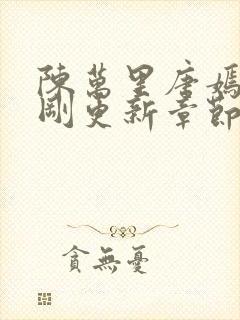 陳萬里唐嫣
剛更新章節
貪無憂